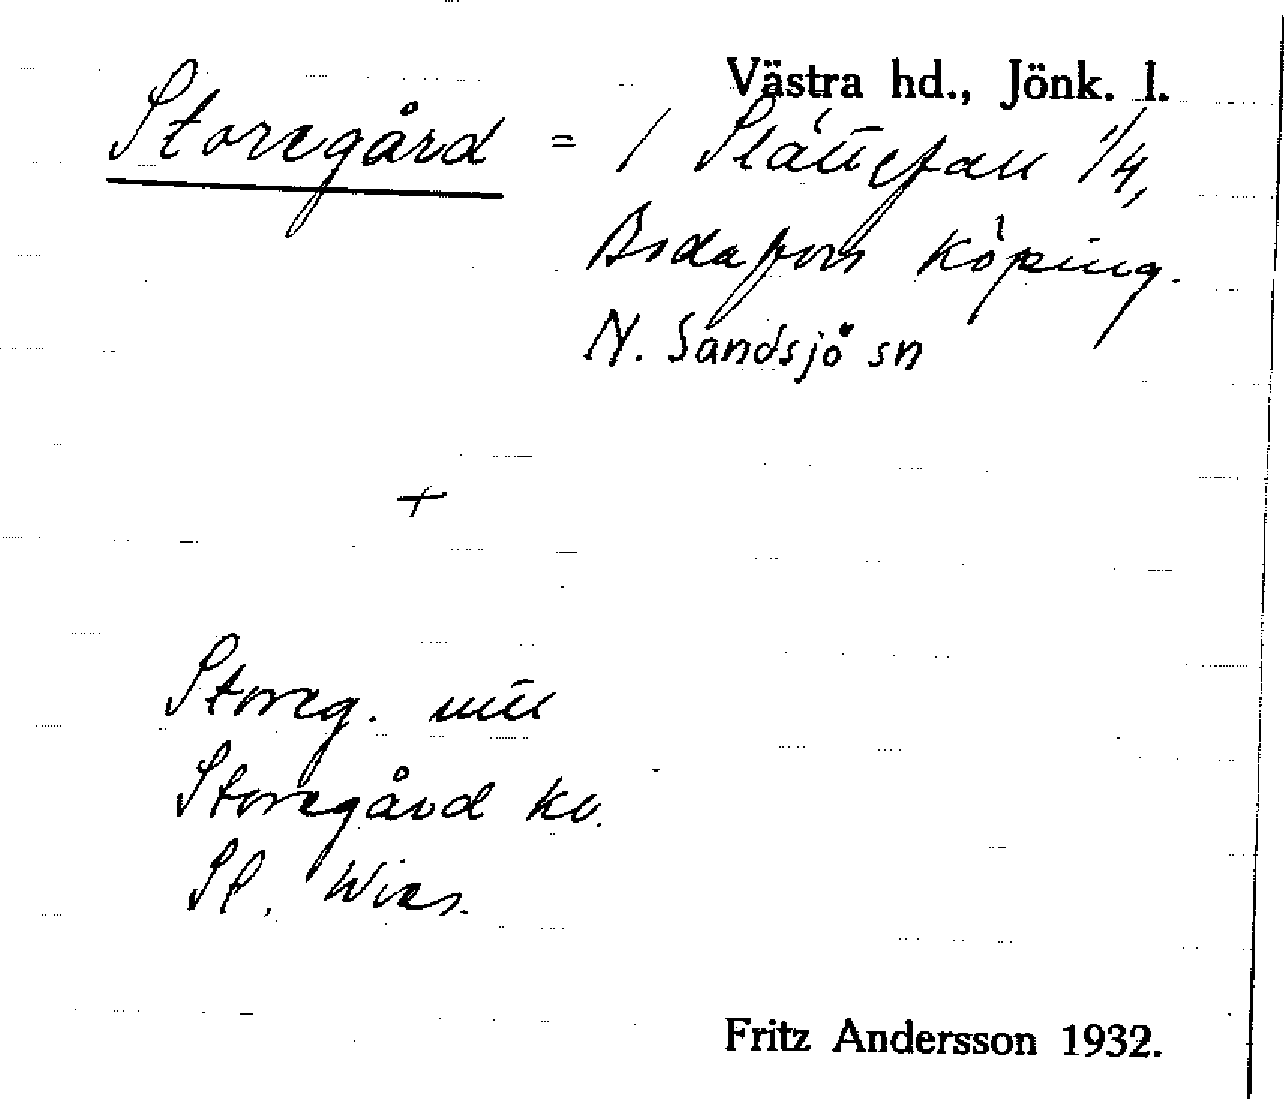 Västra hd., Jönk. l.
Storegård = / Slättefall 1/4,
Bodafors köping.
N. Sandsjö sn
+
Storeg. mtl
Storegård kv.
Sl.
Fritz Andersson 1932.